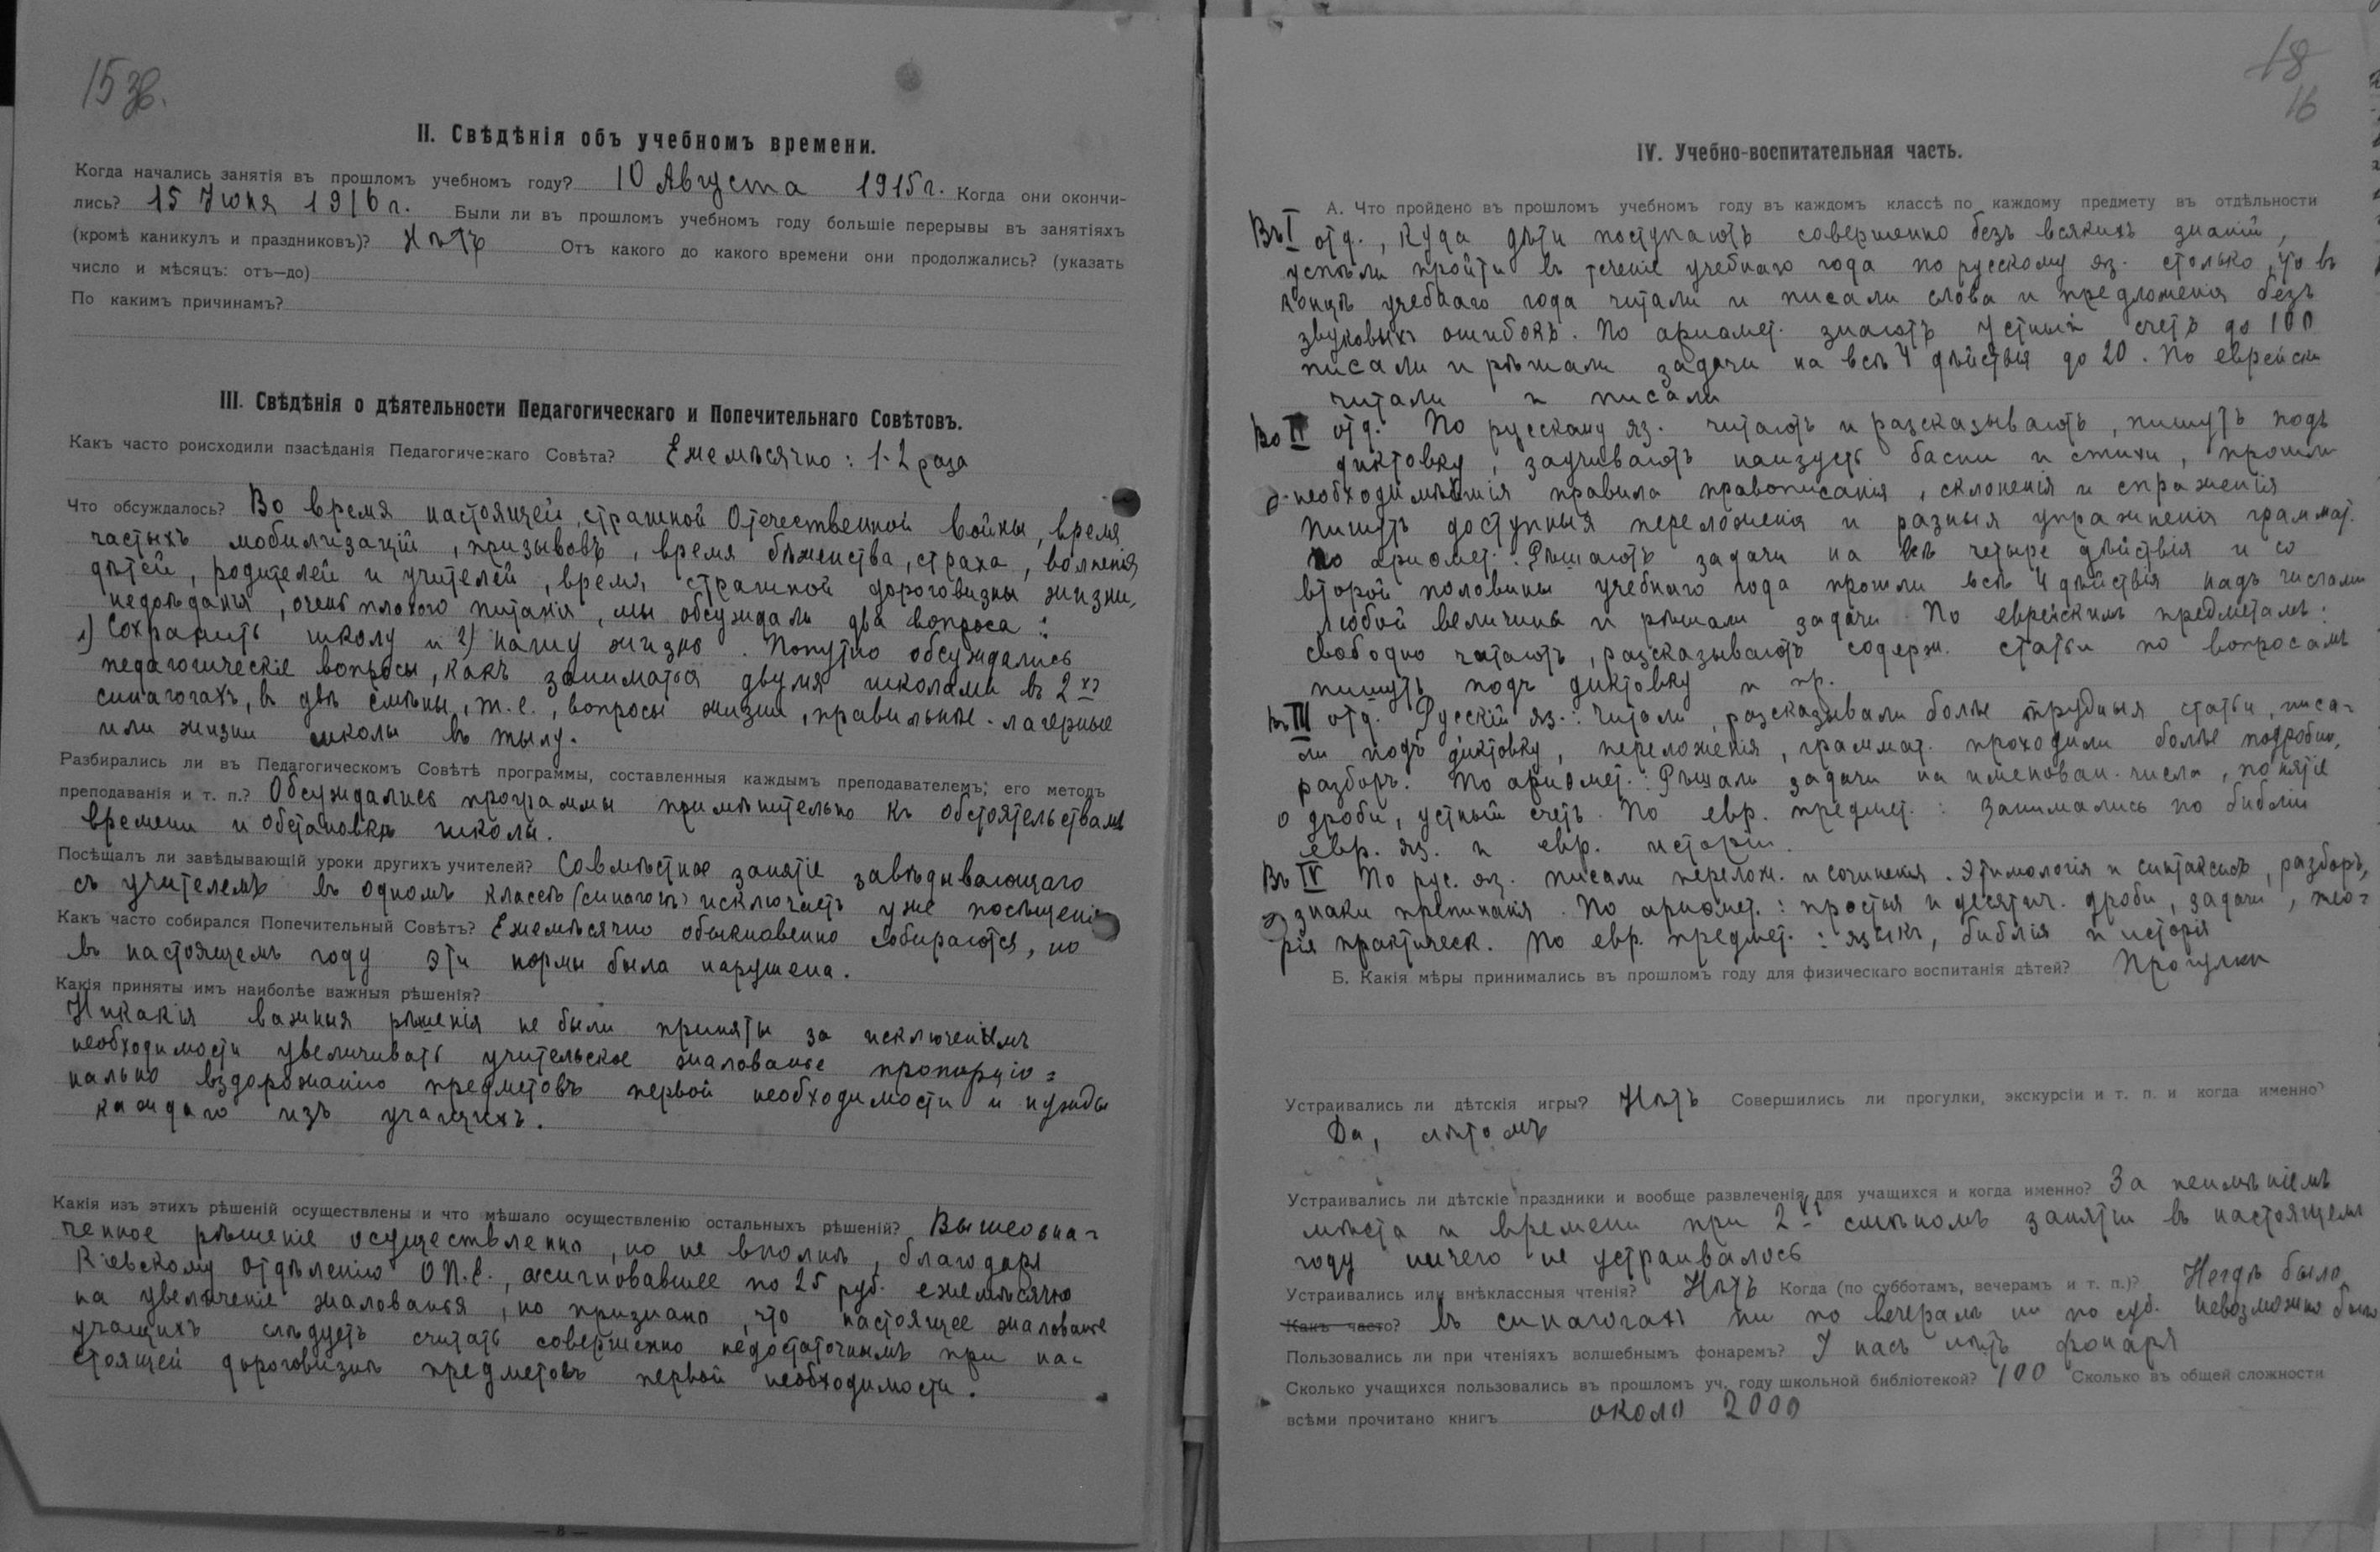 15 зв.
II. Свѣдѣнія объ учебномъ времени.
Когда начались занятія въ прошломъ учебномъ году? 10 Августа 1915 г. Когда они окончи-
лись? 15 Іюня 1916 г. Были ли въ прошломъ учебномъ году большіе перерывы въ занятіяхъ
(кромѣ каникулъ и праздниковъ)? Нѣтъ Отъ какого до какого времени они продолжались? (указать
число и мѣсяцъ: отъ—до)
По какимъ причинамъ?
III. Свѣдѣнія о дѣятельности Педагогическаго и Попечительнаго Совѣтовъ.
Какъ часто роисходили пзасѣданія Педагогическаго Совѣта? Ежемѣсячно: 1-2 раза
Что обсуждалось? Во время настоящей, страшной Отечественной войны, время
частыхъ мобилизацій, призывовъ, время бѣженства, страха, волненія
дѣтей, родителей и учителей, время страшной дороговизны жизни,
недоѣданья, очень плохого питанія, мы обсуждали два вопроса:
1) Сохранить школу и 2) нашу жизнь. Попутно обсуждались
педагогическіе вопросы, какъ заниматься двумя школами въ 2хъ
синагогахъ, въ двѣ смѣны, т.е., вопросы жизни, правильнѣе - лагерные
или жизни школы въ тылу.
Разбирались ли въ Педагогическомъ Совѣтѣ программы, составленныя каждымъ преподавателемъ; его методъ
преподаванія и т. п.? Обсуждались программы примѣнительно къ обстоятельствамъ
времени и обстановкѣ школы.
Посѣщалъ ли завѣдывающій уроки другихъ учителей? Совмѣстное занятіе завѣдывающаго
съ учителемъ въ одномъ классѣ (синагогѣ) исключаетъ уже посѣщеніе
Какъ часто собирался Попечительный Совѣтъ? Ежемѣсячно обыкновенно собираются, но
въ настоящемъ году эти нормы была нарушена.
Какія приняты имъ наиболѣе важныя рѣшенія?
Никакія важныя рѣшенія не были приняты за исключеніемъ
необходимости увеличивать учительское жалованье пропорціо=
нально вздорожанію предметовъ первой необходимости и нужды
каждаго изъ учащихъ.
Какія изъ этихъ рѣшеній осуществлены и что мѣшало осуществленію остальныхъ рѣшеній? Вышеозна-
ченное рѣшеніе осуществленно, но не вполнѣ, благодаря
Кіевскому отдѣленію О.П.Е., асигновавшее по 25 руб. ежемѣсячно
на увеличеніе жалованья, но признано, что настоящее жалованье
учащихъ слѣдуетъ считать совершенно недостаточнымъ при на-
стоящей дороговизнѣ предметовъ первой необходимости.
— 8 —
18
16
IV. Учебно-воспитательная часть.
А. Что пройдено въ прошломъ учебномъ году въ каждомъ классѣ по каждому предмету въ отдѣльности
Въ I отд., куда дѣти поступаютъ совершенно безъ всякихъ знаній,
успѣли пройти въ теченіе учебнаго года по русскому яз. столько, что въ
концѣ учебнаго года читали и писали слова и предложенія безъ
звуковыхъ ошибокъ. По ариѳмет. знаютъ устный счетъ до 100
писали и рѣшали задачи на всѣ 4 дѣйствія до 20. По еврейски
читали и писали
Во II отд. По русскому яз. читаютъ и разсказываютъ, пишутъ подъ
диктовку, заучиваютъ наизусть басни и стихи, прошли
необходимѣйшія правила правописанія, склоненія и спряженія
пишутъ доступныя переложенія и разныя упражненія граммат.
по ариѳмет. Рѣшаютъ задачи на всѣ четыре дѣйствія и со
второй половины учебнаго года прошли всѣ 4 дѣйствія надъ числами
любой величины и рѣшали задачи. По еврейскимъ предметамъ:
свободно читаютъ, разсказываютъ содерж. статьи по вопросамъ
пишутъ подъ диктовку и пр.
Въ III отд. Русскій яз.: Читали, разсказывали болѣе трудныя статьи, писа-
ли подъ диктовку, переложенія, граммат. проходили болѣе подробно,
разборъ. По ариѳмет.: Рѣшали задачи на именован. числа, понятіе
о дроби, устный счетъ. По евр. предмет.: Занимались по библіи
евр. яз. и евр. исторіи.
Въ IV По рус. яз. писали перелож. и сочиненія. Этимологія и синтаксисъ, разборъ,
знаки препинанія. По ариѳмет.: простыя и десятич. дроби, задачи, тео=
рія практическ. По евр. предмет.: языкъ, библія и исторія
Б. Какія мѣры принимались въ прошломъ году для физическаго воспитанія дѣтей? Прогулки
Устраивались ли дѣтскія игры? Нѣтъ Совершились ли прогулки, экскурсіи и т. п. и когда именно?
Да, лѣтомъ
Устраивались ли дѣтскіе праздники и вообще развлеченія для учащихся и когда именно? За неимѣніемъ
мѣста и времени при 2хъ смѣномъ занятіи въ настоящемъ
году ничего не устраивалось
Устраивались или внѣклассныя чтенія? Нѣтъ Когда (по субботамъ, вечерамъ и т. п.)? Негдѣ было,
Какъ часто? въ синагогахъ ни по вечерамъ ни по суб. невозможно было
Пользовались ли при чтеніяхъ волшебнымъ фонаремъ? У насъ нѣтъ фонаря
Сколько учащихся пользовались въ прошломъ уч. году школьной библіотекой? 100 Сколько въ общей сложности
всѣми прочитано книгъ около 2000